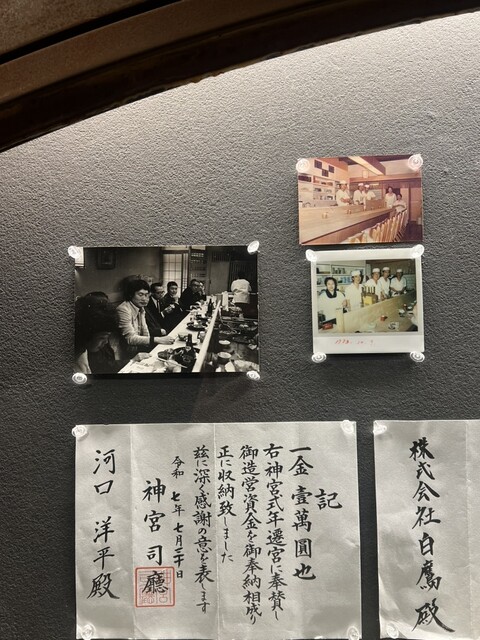 記
一金 壹萬圓也
右神宮式年遷宮に奉賛し
御造営資金を御奉納相成り
正に収納致しました
茲に深く感謝の意を表します
令和 七年 七月 三十日
神宮司廳
河口 洋平殿
株式会社白鷹 殿